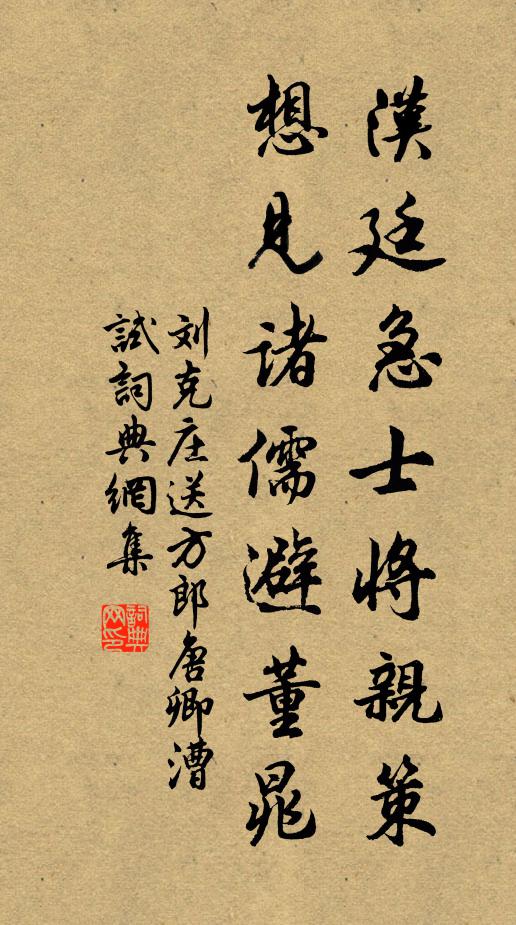 漢廷急士將親策
想見諸儒避董晁
刘克庄送方郎唐卿漕
試詞典網集
詞典網印